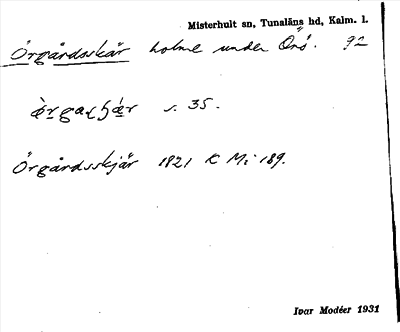 Misterhult sn, Tunaläns hd, Kalm. l.
Örgårdsskär holme under Örö. 92
s. 35.
Örgårdsskjär 1821 K Mi 189.
Ivar Modéer 1931